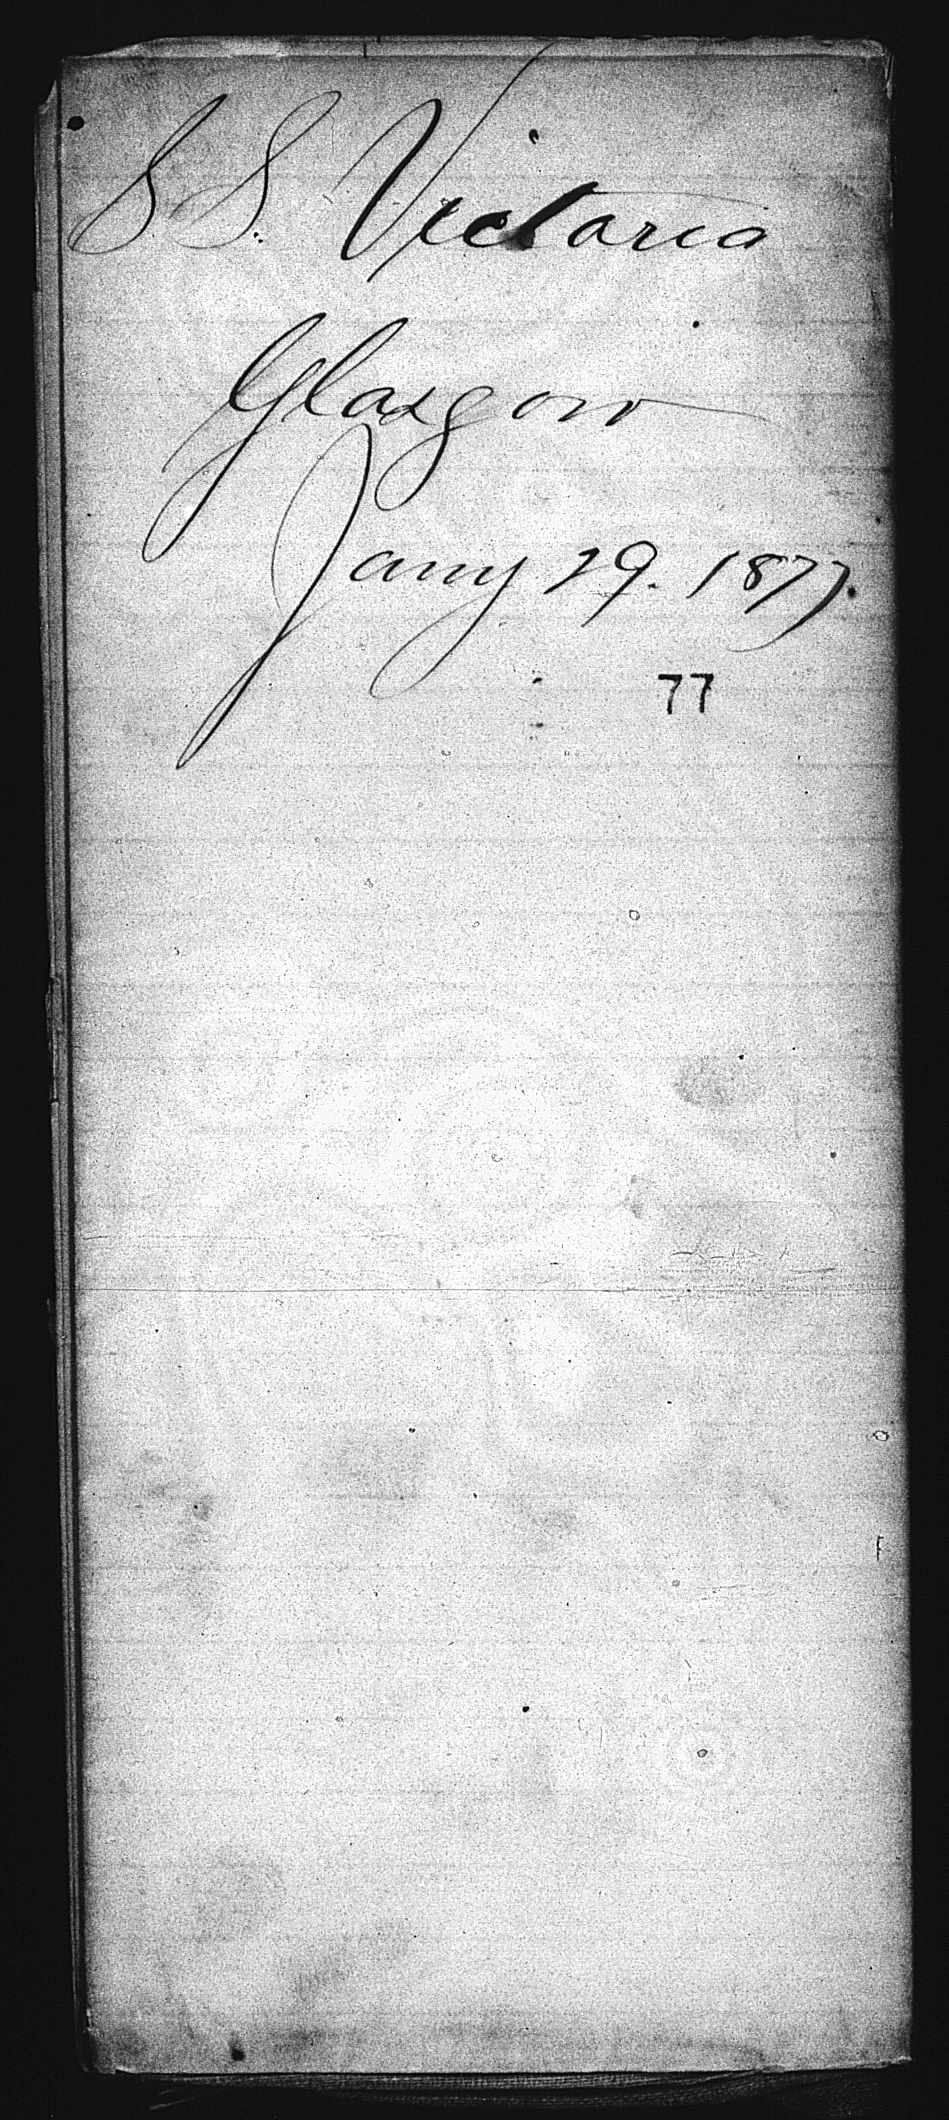 SS. Victoria
Glasgow
Jany 29. 1877.
77